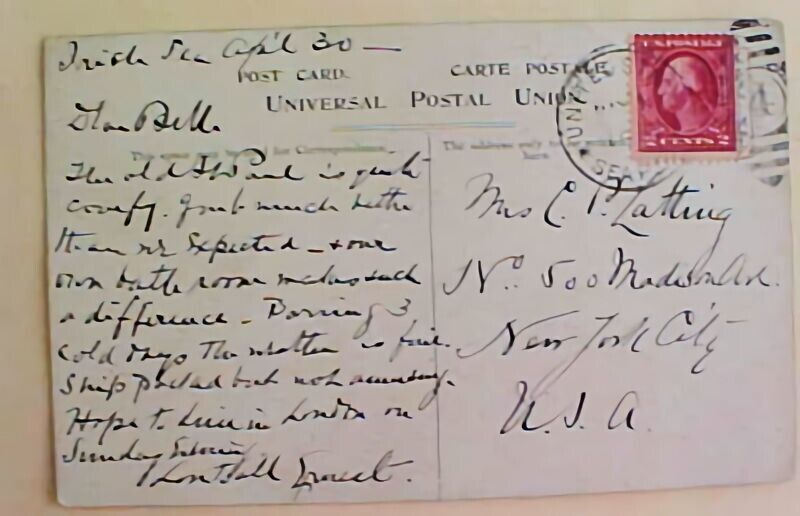 Irish Sea April 30 —
POST CARD.
CARTE POSTALE
UNIVERSAL POSTAL UNION
Dear Belle
for Correspondence
The address only to be
here.
The old St Paul is quite
comfy. Just much better
than we expected — & our
own bath room makes such
a difference — Barring 3
cold days The weather is fine.
Ship packed but not amusing.
Hope to dine in London on
Sunday
Ernest.
Mrs C. P. Latting
No. 500 Madison Ave.
New York City
U. S. A.
U.S. POSTAGE
2 CENTS 2
UNITED S
SEA